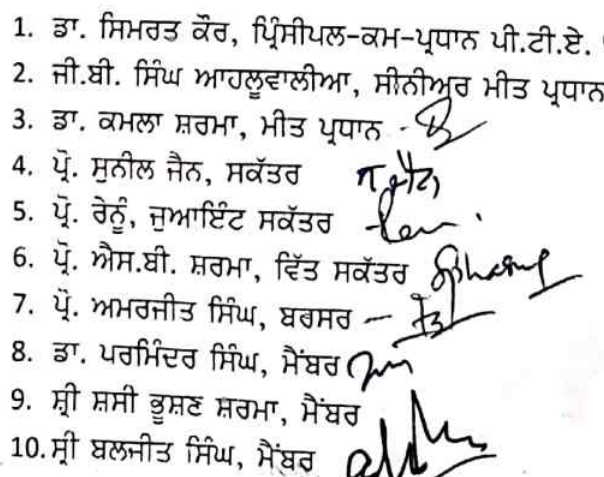 1. ਡਾ. ਸਿਮਰਤ ਕੌਰ, ਪ੍ਰਿੰਸੀਪਲ-ਕਮ-ਪ੍ਰਧਾਨ ਪੀ.ਟੀ.ਏ.
2. ਜੀ.ਬੀ. ਸਿੰਘ ਆਹਲੂਵਾਲੀਆ, ਸੀਨੀਅਰ ਮੀਤ ਪ੍ਰਧਾਨ
3. ਡਾ. ਕਮਲਾ ਸ਼ਰਮਾ, ਮੀਤ ਪ੍ਰਧਾਨ
4. ਪ੍ਰੋ. ਸੁਨੀਲ ਜੈਨ, ਸਕੱਤਰ
5. ਪ੍ਰੋ. ਰੇਨੂੰ, ਜੁਆਇੰਟ ਸਕੱਤਰ
6. ਪ੍ਰੋ. ਐਸ.ਬੀ. ਸ਼ਰਮਾ, ਵਿੱਤ ਸਕੱਤਰ
7. ਪ੍ਰੋ. ਅਮਰਜੀਤ ਸਿੰਘ, ਬਰਸਰ
8. ਡਾ. ਪਰਮਿੰਦਰ ਸਿੰਘ, ਮੈਂਬਰ
9. ਸ਼੍ਰੀ ਸ਼ਸੀ ਭੂਸ਼ਣ ਸ਼ਰਮਾ, ਮੈਂਬਰ
10. ਸ੍ਰੀ ਬਲਜੀਤ ਸਿੰਘ, ਮੈਂਬਰ